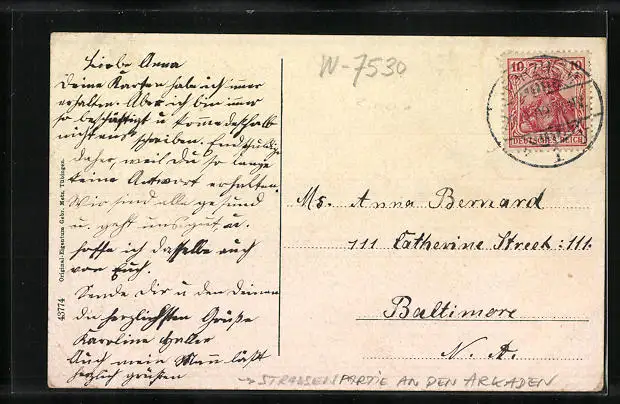 Liebe Anna
Deine Karten habe ich immer
erhalten. Aber ich bin immer
so beschäftigt u. komme deshalb
nicht zum schreiben. Entschuldige
daher, weil Du so lange
keine Antwort erhalten.
Wir sind alle gesund
u. geht uns gut, u.
hoffe ich dasselbe auch
von Euch.
Sende Dir u den Deinen
die herzlichsten Grüße
Karoline Haller
Auch mein Mann läßt
herzlich grüßen
43774 Original-Eigentum Gebr. Metz, Tübingen.
W-7530
10 10
DEUTSCHES REICH
1
Ms. Anna Bernard
111 Catherine Street: 111.
Baltimore
N. A.
→ STRASSENPARTIE AN DEN ARKADEN